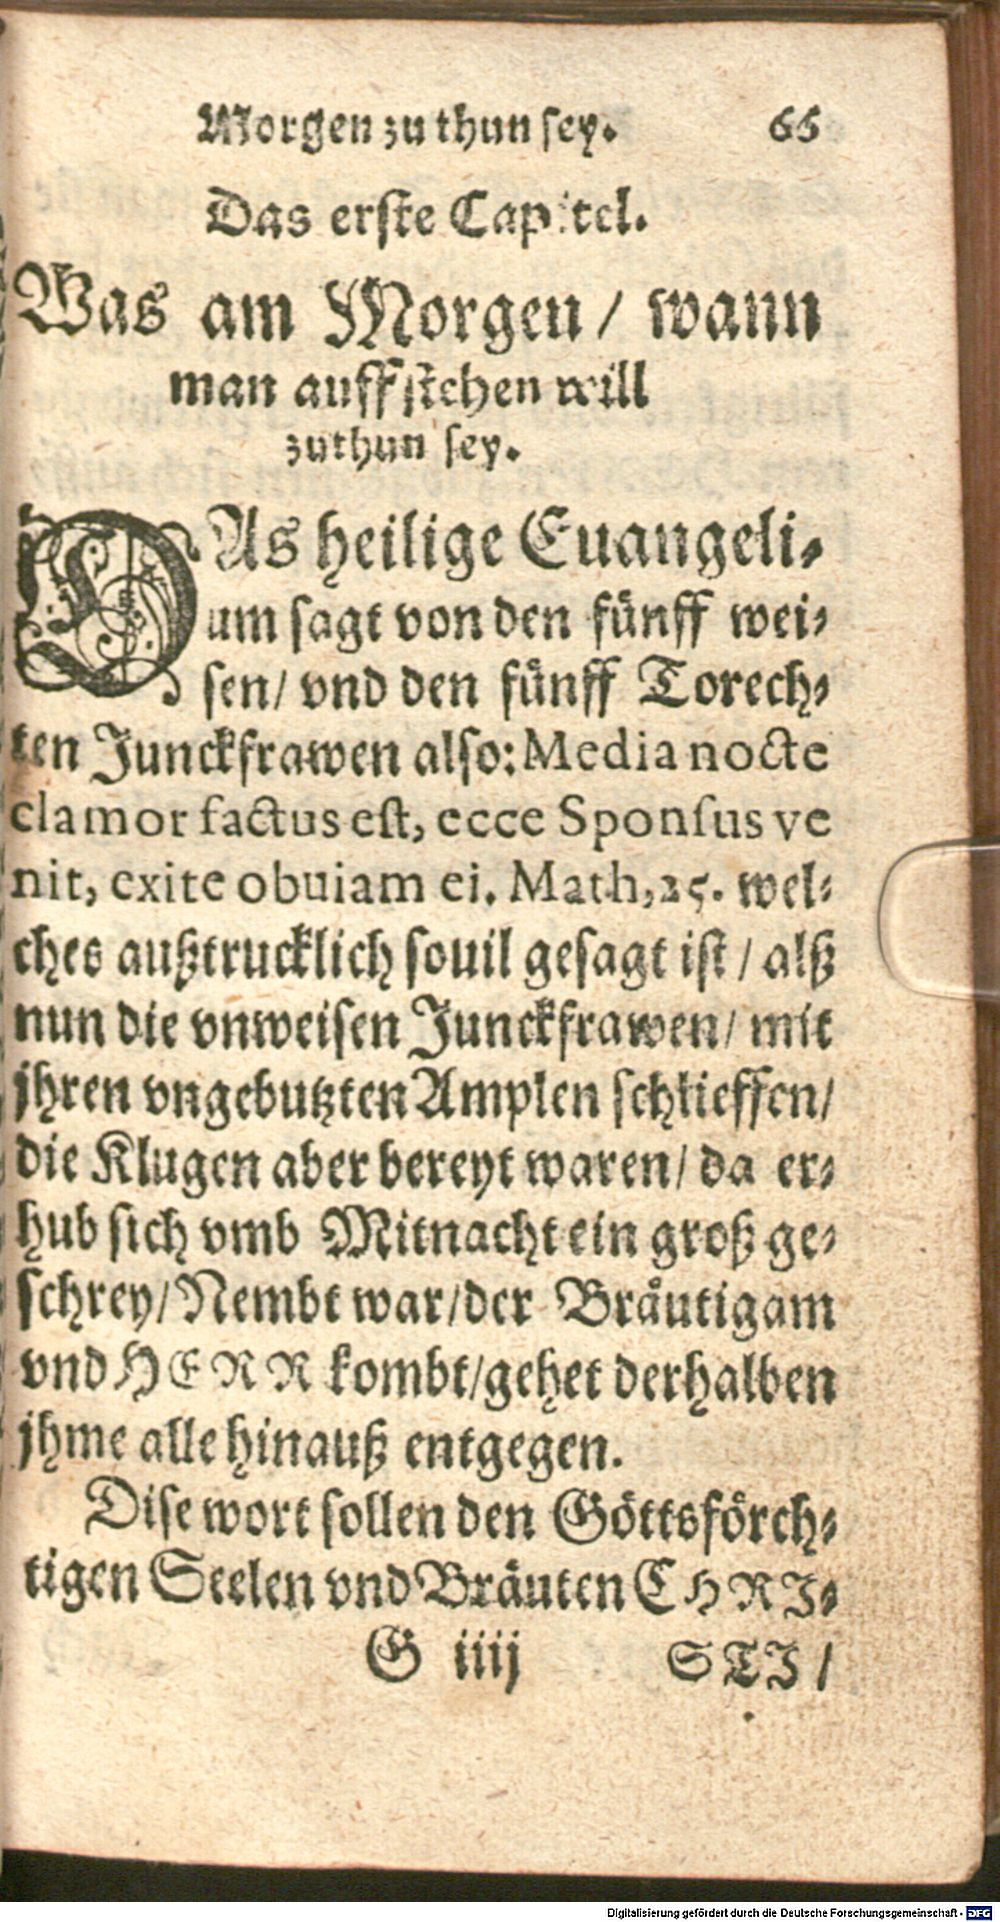 Morgen zu thun sey. 66
Das erste Capitel.
Was am Morgen / wann
man auffstehen will
zuthun sey.
DAs heilige Euangeli-
um sagt von den fünff wei-
sen / vnd den fünff Torech-
ten Junckfrawen also: Media nocte
clamor factus est, ecce Sponsus ve
nit, exite obuiam ei. Math, 25. wel-
ches außtrucklich souil gesagt ist / alß
nun die vnweisen Junckfrawen / mit
jhren vngebutzten Amplen schlieffen /
die Klugen aber bereyt waren / da er-
hub sich vmb Mitnacht ein groß ge-
schrey / Nembt war / der Bräutigam
vnd HERR kombt / gehet derhalben
jhme alle hinauß entgegen.
Dise wort sollen den Göttsförch-
tigen Seelen vnd Bräuten CHRI-
G iiij STI /
Digitalisierung gefördert durch die Deutsche Forschungsgemeinschaft - DFG